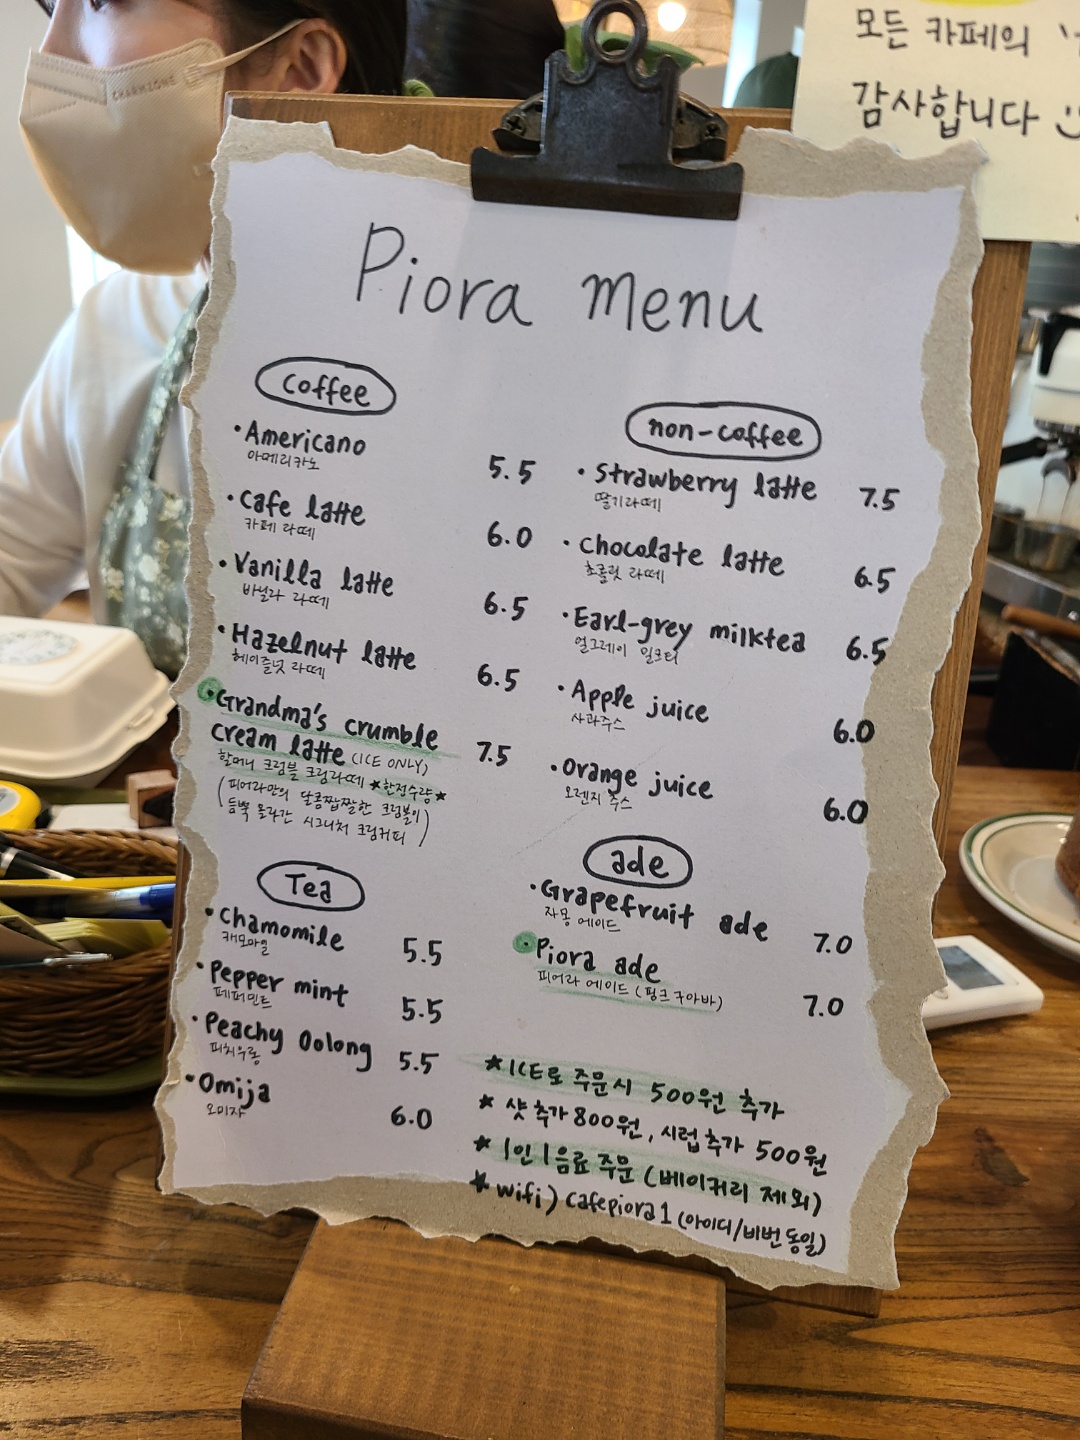 CHARMZONE
모든 카페의
감사합니다
Piora menu
coffee
·Americano 5.5
아메리카노
·Cafe latte 6.0
카페 라떼
·Vanilla latte 6.5
바닐라 라떼
·Hazelnut latte 6.5
헤이즐넛 라떼
·Grandma's crumble
cream latte (ICE ONLY) 7.5
할머니 크럼블 크림라떼 ★한정수량★
(피어라만의 달콤짭짤한 크럼블이
듬뿍 올라간 시그니처 크림커피)
Tea
·Chamomile 5.5
캐모마일
·Pepper mint 5.5
페퍼민트
·Peachy Oolong 5.5
피치우롱
·Omija 6.0
오미자
non-coffee
·Strawberry latte 7.5
딸기라떼
·Chocolate latte 6.5
초콜릿 라떼
·Earl-grey milktea 6.5
얼그레이 밀크티
·Apple juice 6.0
사과주스
·Orange juice 6.0
오렌지 주스
ade
·Grapefruit ade 7.0
자몽 에이드
·Piora ade 7.0
피어라 에이드 (핑크구아바)
★ICE로 주문시 500원 추가
★ 샷 추가 800원, 시럽 추가 500원
★ 1인 1음료 주문 (베이커리 제외)
★ wifi) cafepiora1 (아이디/비번 동일)